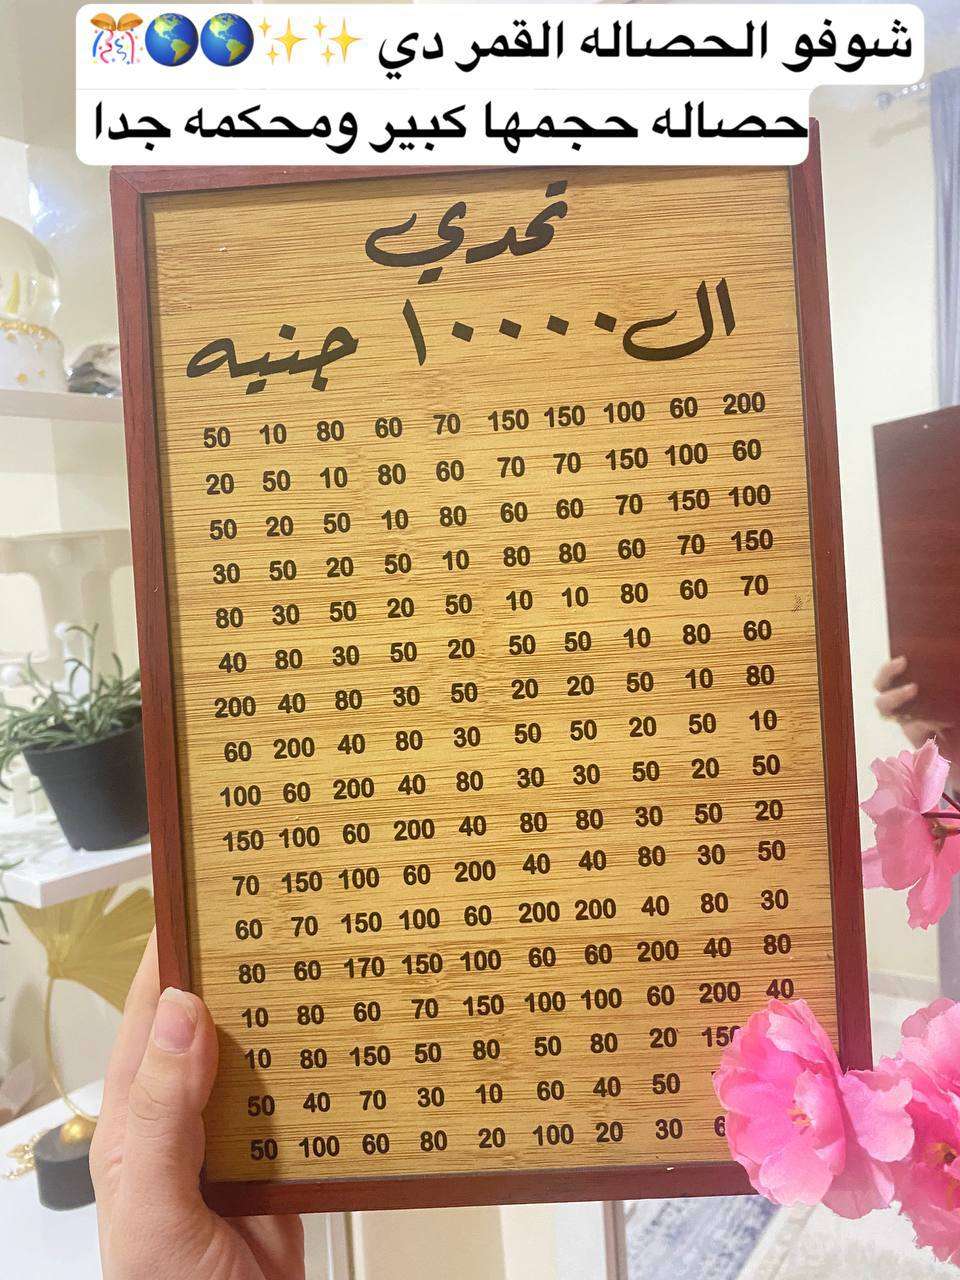 شوفو الحصاله القمر دي ✨✨🌎🌎🎊
حصاله حجمها كبير ومحكمه جدا
تحدي
ال١٠٠٠٠ جنيه
50 10 80 60 70 150 150 100 60 200
20 50 10 80 60 70 70 150 100 60
50 20 50 10 80 60 60 70 150 100
30 50 20 50 10 80 80 60 70 150
80 30 50 20 50 10 10 80 60 70
40 80 30 50 20 50 50 10 80 60
200 40 80 30 50 20 20 50 10 80
60 200 40 80 30 50 50 20 50 10
100 60 200 40 80 30 30 50 20 50
150 100 60 200 40 80 80 30 50 20
70 150 100 60 200 40 40 80 30 50
60 70 150 100 60 200 200 40 80 30
80 60 170 150 100 60 60 200 40 80
10 80 60 70 150 100 100 60 200 40
10 80 150 50 80 50 80 20 150
50 40 70 30 10 60 40 50
50 100 60 80 20 100 20 30